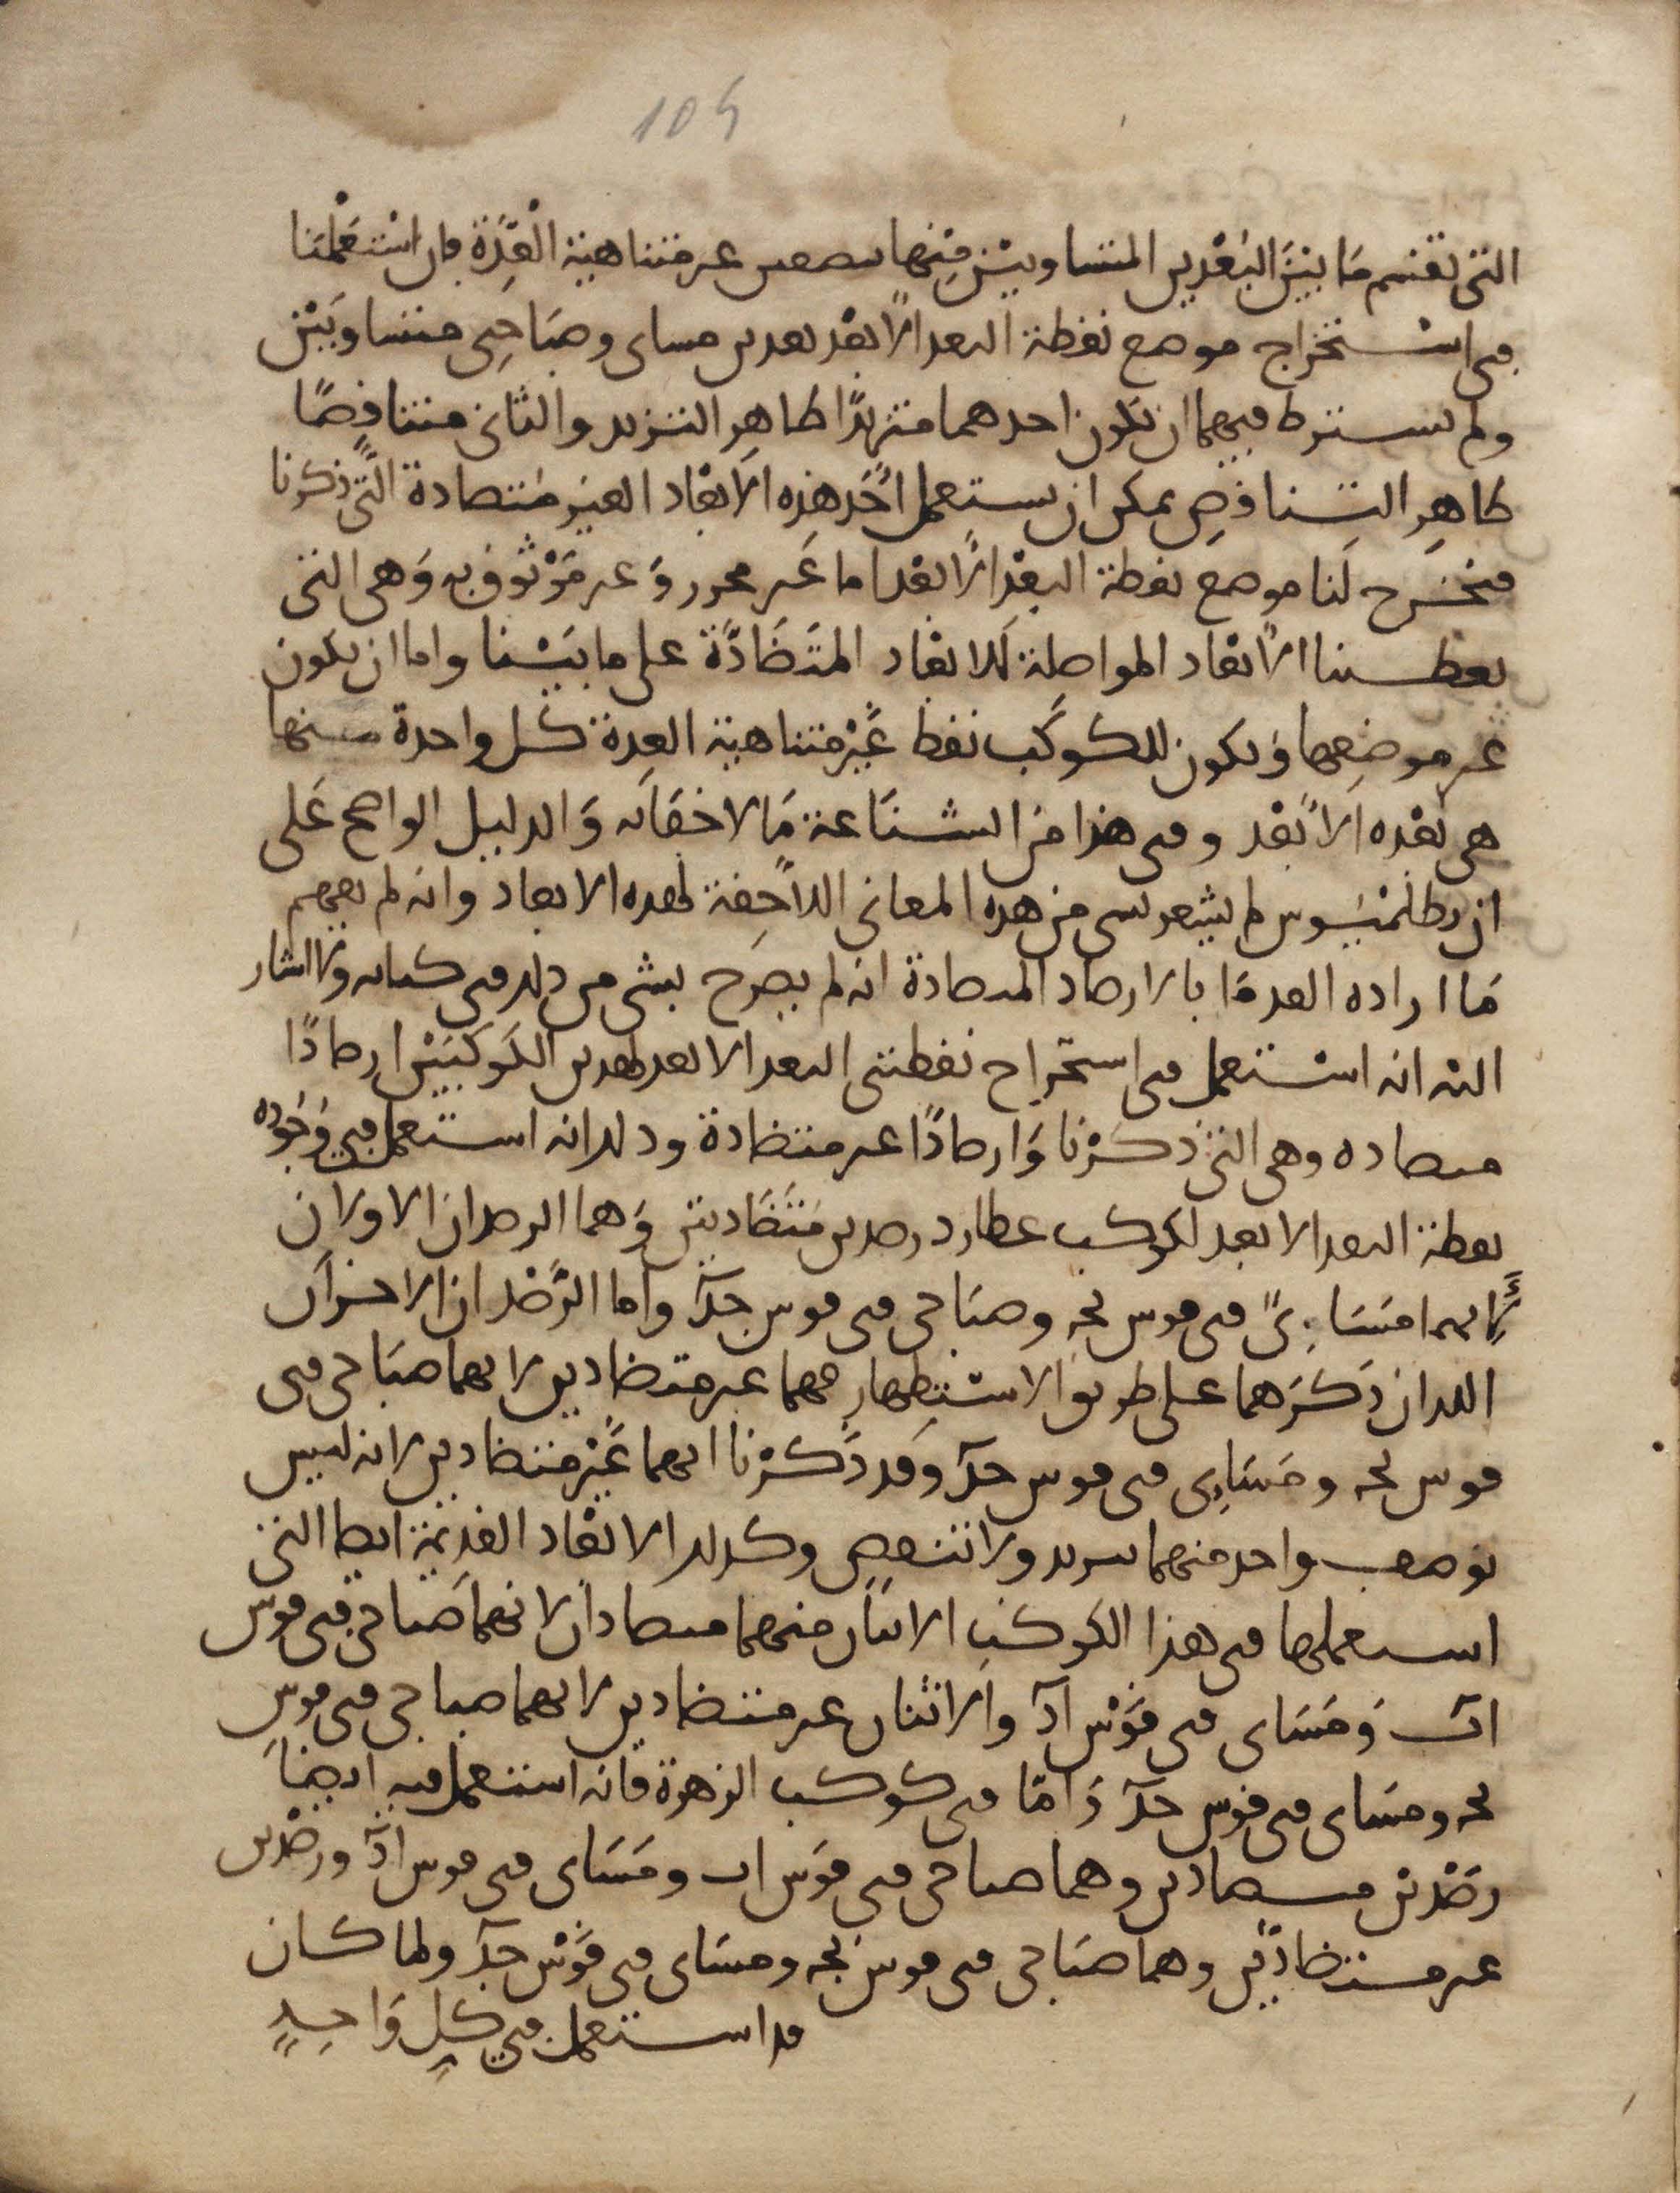 104
التى تقسم ما بين البعدين المتساويين منها بنصفين غير متناهية العدة فان استعملنا
فى استخراج موضع نقطة البعد الابعد بعدين مساى وصباحى متساويين
ولم نشترط فيهما ان يكون احدهما متزيدًا ظاهر التزيد والثانى متناقصًا
ظاهر التناقص يمكن ان نستعمل احد هذه الابعاد الغير متضادة التى ذكرنا
فتخرج لنا موضع نقطة البعد الابعد اما غير محرر وغير موثوق به وهى التى
تعطينا الابعاد المواصلة للابعاد المتضادّة على ما بيّنا واما ان يكون
غير موضعها ويكون للكوكب نقط غير متناهية العدة كل واحدة منها
هى بعده الابعد وفى هذا من الشناعة ما لا خفا به والدليل الواضح على
ان بطلميوس لم يشعر بشى من هذه المعانى اللاحقة لهذه الابعاد وانه لم يفهم
ما اراده القدما بالارصاد المتضادة انه لم يصرح بشى من ذلك فى كتابه ولا اشار
اليه انه استعمل فى استخراج نقطتى البعد الابعد لهذين الكوكبين ارصادًا
متضاده وهى التى ذكرنا وارصادًا غير متضادة وذلك انه استعمل فى وجوده
نقطة البعد الابعد لكوكب عطارد رصدين متضادين وهما الرصدان الاولان
لانهما مساىٌ فى قوس بجه وصباحى فى قوس جد واما الرصدان الاخران
اللذان ذكرهما على طريق الاستظهار فهما غير متضادين لانهما صباحى فى
قوس بجه ومساى فى قوس جد وقد ذكرنا انهما غير متضادين لانه ليس
يوصف واحد منهما بتزيد ولا تنقص وكذلك الابعاد القديمة ايضا التى
استعملها فى هذا الكوكب الاثنان منهما متضادان لانهما صباحى فى قوس
اب ومساى فى قوس اد والاثنان غير متضادين لانهما صباحى فى قوس
بجه ومساى فى قوس جد واما فى كوكب الزهرة فانه استعمل فيه ايضا
رصدين متضادين وهما صباحى فى قوس اب ومساى فى قوس اد ورصدين
غير متضادين وهما صباحى فى قوس بجه ومساى فى قوس جد ولما كان
قد استعمل فى كل واحدٍ